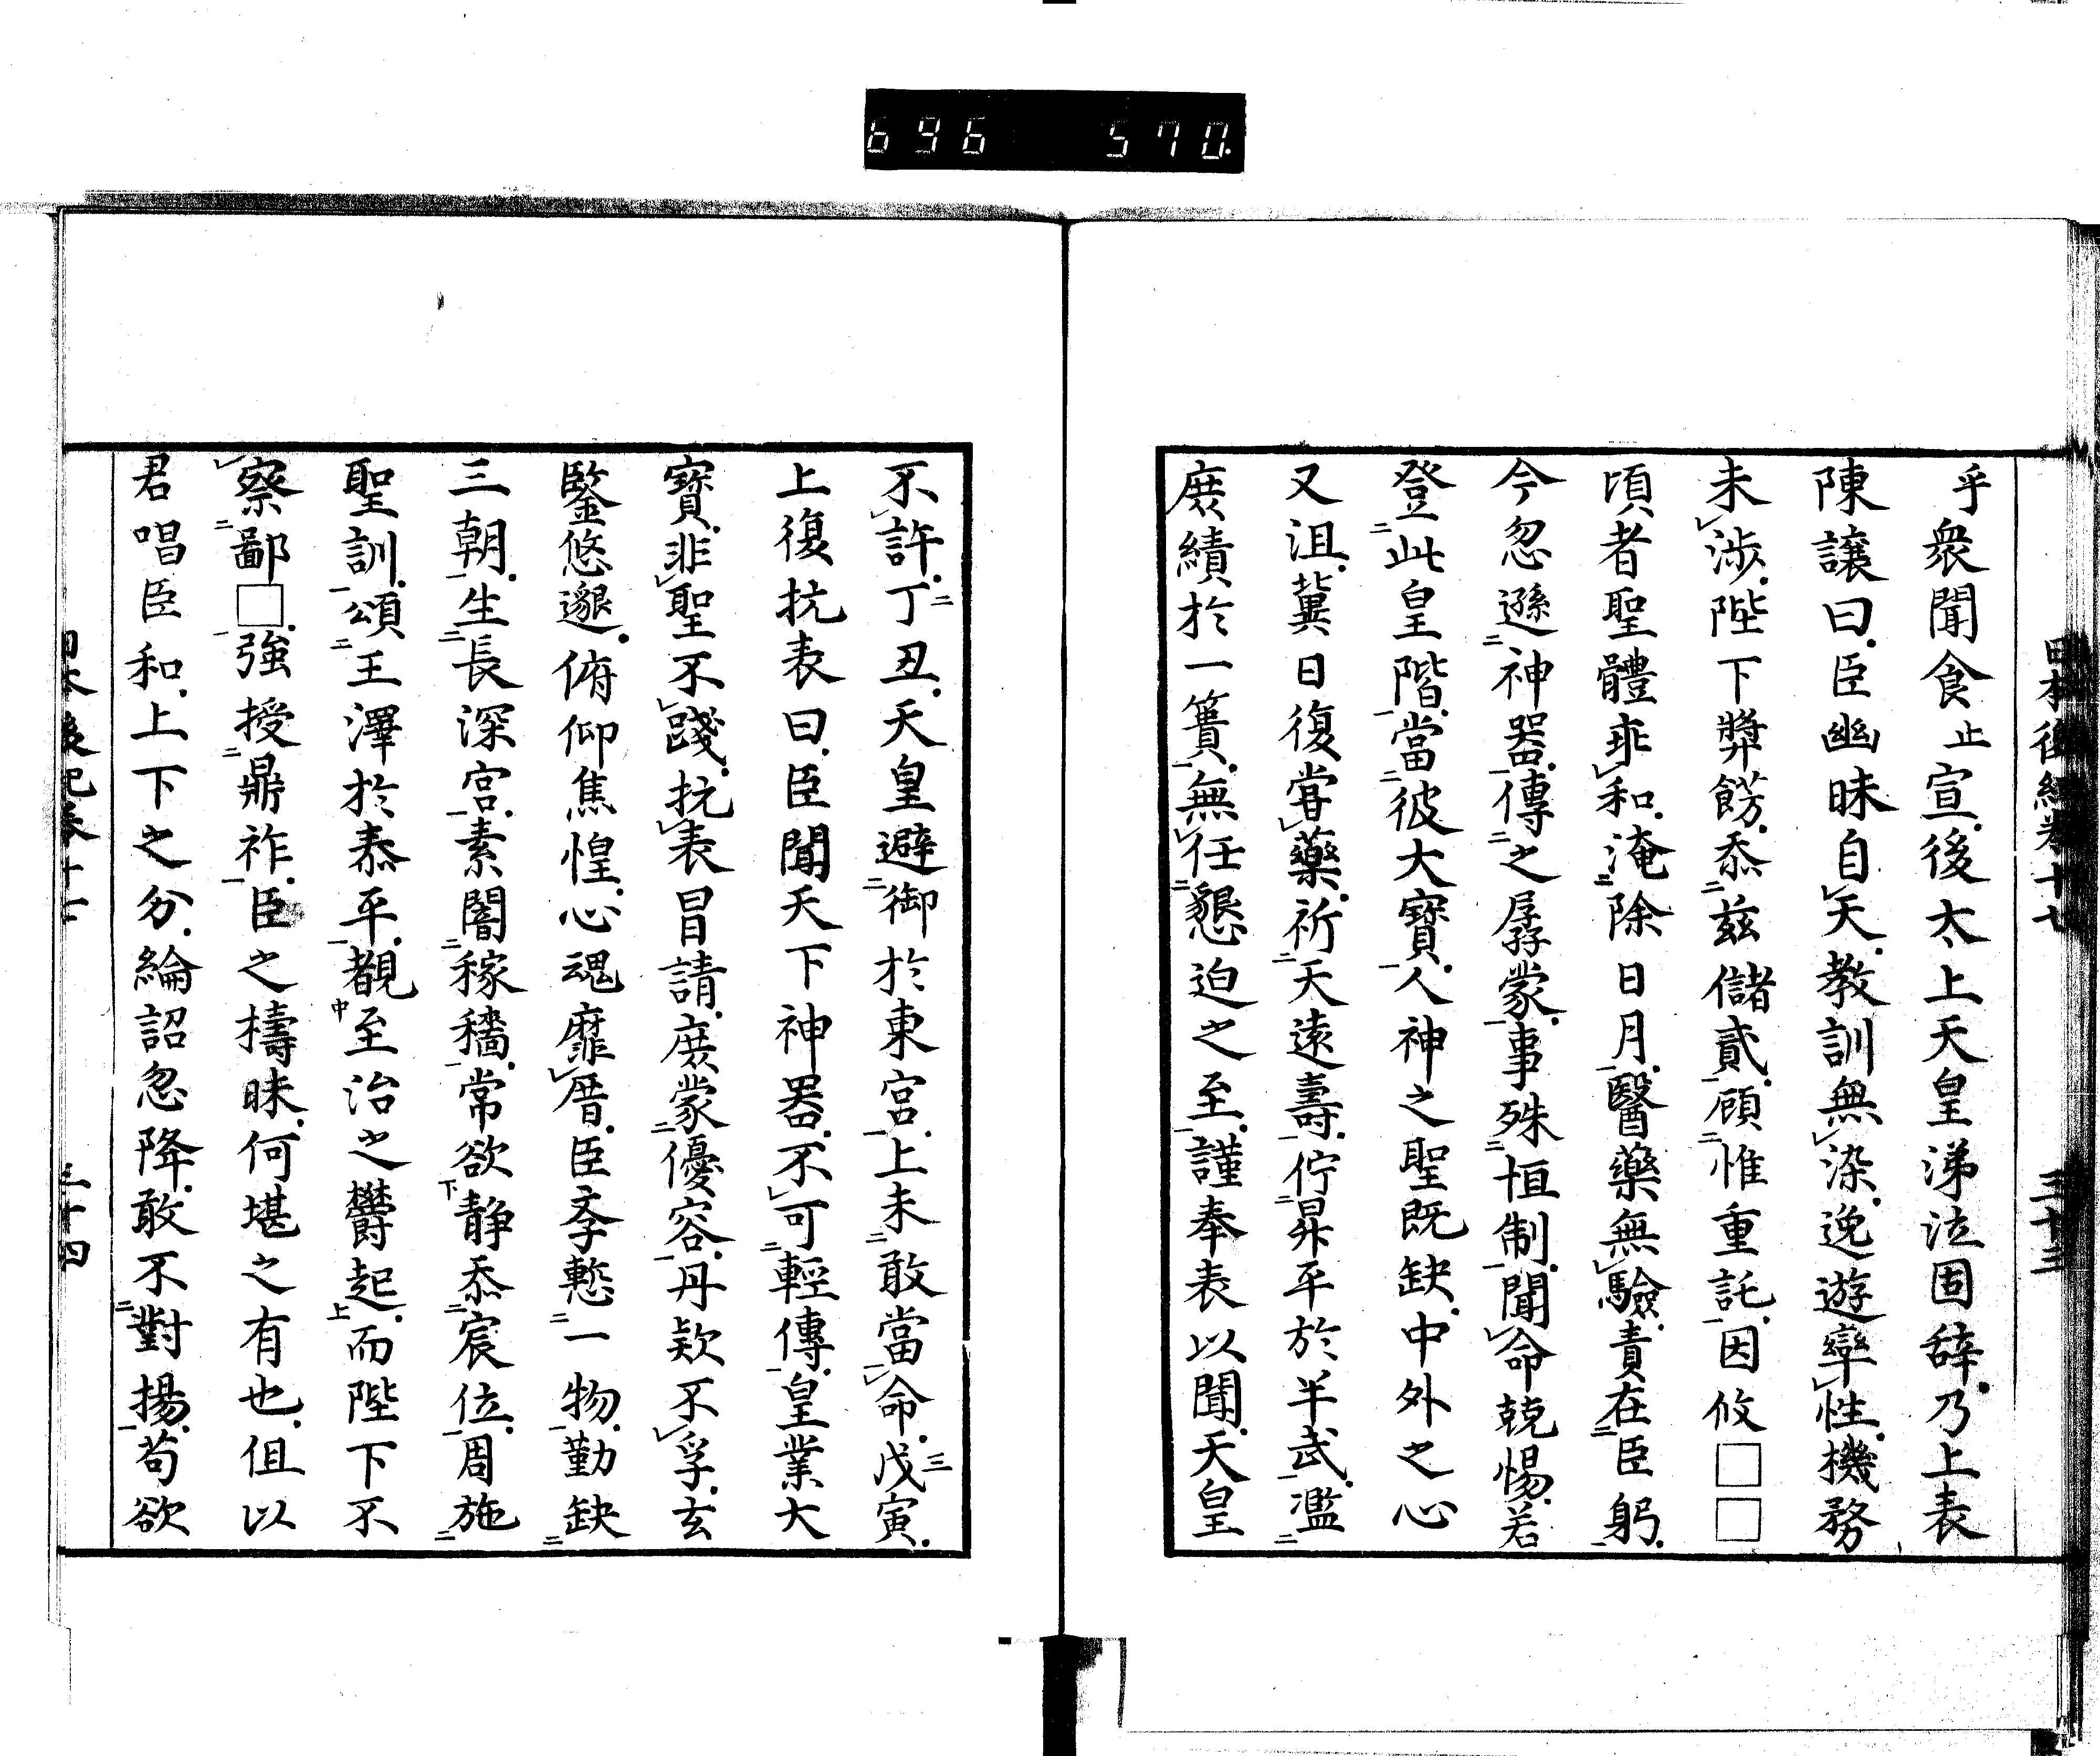 696 570.
日本後紀卷十七 三十三
乎衆聞食止宣後太上天皇涕泣固辞乃上表
陳讓曰臣幽昧自天教訓無染逸遊率性機務
未渉陛下奬餝忝茲儲貳顧惟重託因攸□□
頃者聖體乖和淹除日月醫藥無驗責在臣躬
今忽遜神器傳之孱蒙事殊恒制聞命兢惕若
登此皇階當彼大寳人神之聖既缺中外之心
又沮冀日復甞藥祈天遠壽佇昇平於半武濫
庶績於一簣無任懇迫之至謹奉表以聞天皇
不許丁丑天皇避御於東宮上未敢當命戊寅
上復抗表曰臣聞天下神器不可輕傳皇業大
寳非聖不踐抗表冒請庶蒙優容丹欵不孚玄
鑒悠邈俯仰焦惶心魂靡厝臣孝慙一物勤缺
三朝生長深宮素闇稼穡常欲静忝宸位周施
聖訓頌王澤於泰平覩至治之欝起而陛下不
察鄙□強授鼎祚臣之檮昧何堪之有也但以
君唱臣和上下之分綸詔忽降敢不對揚苟欲
日本後紀卷十七 三十四